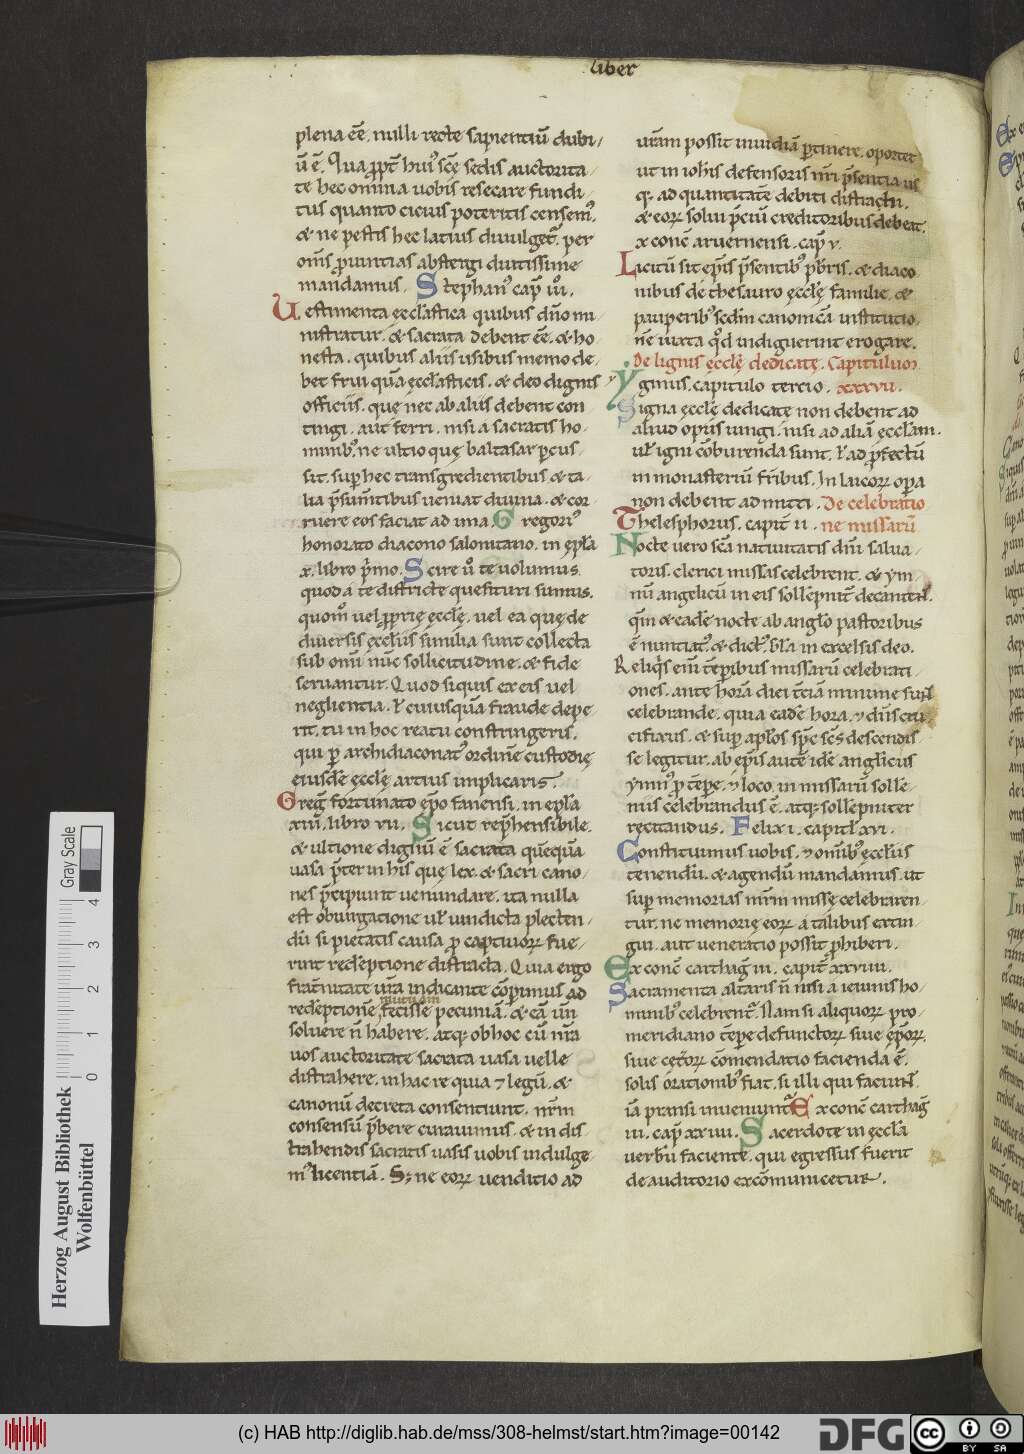 liber
plena eē. nulli recte sapientiū dubi-
ū ē. Qua ꝓpt̄ huiꝰ scē sedis auctorita-
te hec omnia uobis resecare fundi-
tus quanto cicius poteritis censemꝰ.
& ne pestis hec latius diuulgetᷣ. per
om̄s ꝓuintias abstergi dūtissime
mandamus. Stephanꝰ cap̄ iii.
Uestimenta ecclastica quibus dn̄o mi-
nistratur. & sacrata debent eē. & ho-
nesta. quibus aliis usibus nemo de-
bet frui quā ecclasticis. & deo dignis
officiis. que nec ab aliis debent con-
tingi. aut ferri. nisi a sacratis ho-
minibꝰ. ne ultio quę baltasar ꝑcus-
sit. suꝑ hec transgredientibus & ta-
lia p̄sum̄tibus ueniat diuina. & cor-
ruere eos faciat ad ima. Gregoriꝰ
honorato diacono salonitano. in epl̄a
x. libro p̄mo. Scire uͦ te uolumus
quod a te districte quesituri sumus.
quomͦ uel ꝓprię ecclę. uel ea quę de
diuersis ęcclīis similia sunt collecta
sub omī nūc sollicitudine. & fide
seruantur. Quod siquis ex eis uel
neglientia. ł cuiusquā fraude depe-
rit. tu in hoc reatu constringeris.
qui ꝑ archidiaconatꝰ ordinē custodię
eiusdē ecclę artius implicaris.
Greḡ fortunato ep̄o fanensi. in epl̄a
xiii. libro vii. Sicut rep̄hensibile.
& ultione dignū ē sacrata quēquā
uasa p̄ter in his que lex. & sacri cano-
nes p̄cipiunt uenundare. ita nulla
est obiurgatione uł uindicta plecten-
dū si pietatis causa ꝓ captiuoꝝ fue-
rint redēptione distracta. Quia ergo
frat̄nitate ur̄a indicante cōperimus ad
mutuam
redēptionē fecisse pecuniā. & eā un̄
soluere n̄ habere. atq; ob hoc cū nr̄a
uos auctoritate sacrata uasa uelle
distrahere. in hac re quia ⁊ legū. &
canonū decreta consentiunt. nr̄m
consensū p̄bere curauimus. & in dis-
trahendis sacratis uasis uobis indulge-
mꝰ licentiā. S; ne eoꝝ uenditio ad
ur̄am possit inuidiā ꝑtinere. oportet
ut in ioh̄is defensoris nr̄i p̄sentia us-
q; ad quantitatē debiti distrachi.
& eoꝝ solui p̄ciū creditoribus debeat.
x conc̄ aruernensi. cap̄ v.
Licitū sit ep̄is p̄sentibꝰ p̄br̄is. & diaco-
nibus de thesauro ęcclę familię. &
pauperibꝰ scdm̄ canonicā institutio-
nē iuxta qd̄ indiguerint erogare.
De lignis ęcclę dedicatę. Capitulum
yginus. capitulo tercio. xxxvii.
Signa ęcclę dedicate non debent ad
aliud opus iungi. nisi ad aliā ecclam.
uł igni cōburenda sunt. ł ad p̄fectū
in monasteriū fr̄ibus. In laicoꝝ oꝑa
non debent admitti. De celebratio
Thelesphorus. capit̄ ii. ne missarū
Nocte uero sc̄a natiuitatis dn̄i salua-
toris. clerici missas celebrent. & ym-
nū angelicū in eis sollēpnit̄ decantent.
qm̄ & eadē nocte ab anglo pastoribus
ē nuntiatꝰ. & dictꝰ. gl̄a in excelsis deo.
Reliqs̄ eim̄ tēporibus missarū celebrati-
ones. ante horā diei t̄ciā minime sunt
celebrande. quia eadē hora. ⁊ dn̄s cru-
cifixus. & super aplōs sp̄c sc̄s descendis-
se legitur. ab ep̄is autē idē anglicus
ymnꝰ ꝓ tēpe. ⁊ loco. in missarū solle-
niis celebrandus ē. atq; sollēpniter
recitandus. Felix i. capitł xvi.
Constituimus uobis. ⁊ omībꝰ ęccliis
tenendū. & agendū mandamus. ut
sup̄ memorias mr̄m missę celebraren-
tur. ne memorię eoꝝ a talibus extin-
gui. aut ueneratio possit ꝓhiberi.
Ex conc̄ carthaḡ iii. capit̄ xxviiii.
Sacramenta altaris n̄ nisi a ieiunis ho-
minibꝰ celebrent̄. Nam si aliquoꝝ pro-
meridiano tēpe defunctoꝝ siue ep̄oꝝ.
siue cet̄oꝝ cōmendatio facienda ē.
solis orationibꝰ fiat. si illi qui faciunt.
iā pransi inueniunt̄. Ex conc̄ carthaḡ
iii. cap̄ xxiiii. Sacerdote in ęccla
uerbū faciente. qui egressus fuerit
de auditorio excōmunicetur.
Gray Scale
0 1 2 3 4
Herzog August Bibliothek
Wolfenbüttel
(c) HAB http://diglib.hab.de/mss/308-helmst/start.htm?image=00142
DFG
cc
BY SA